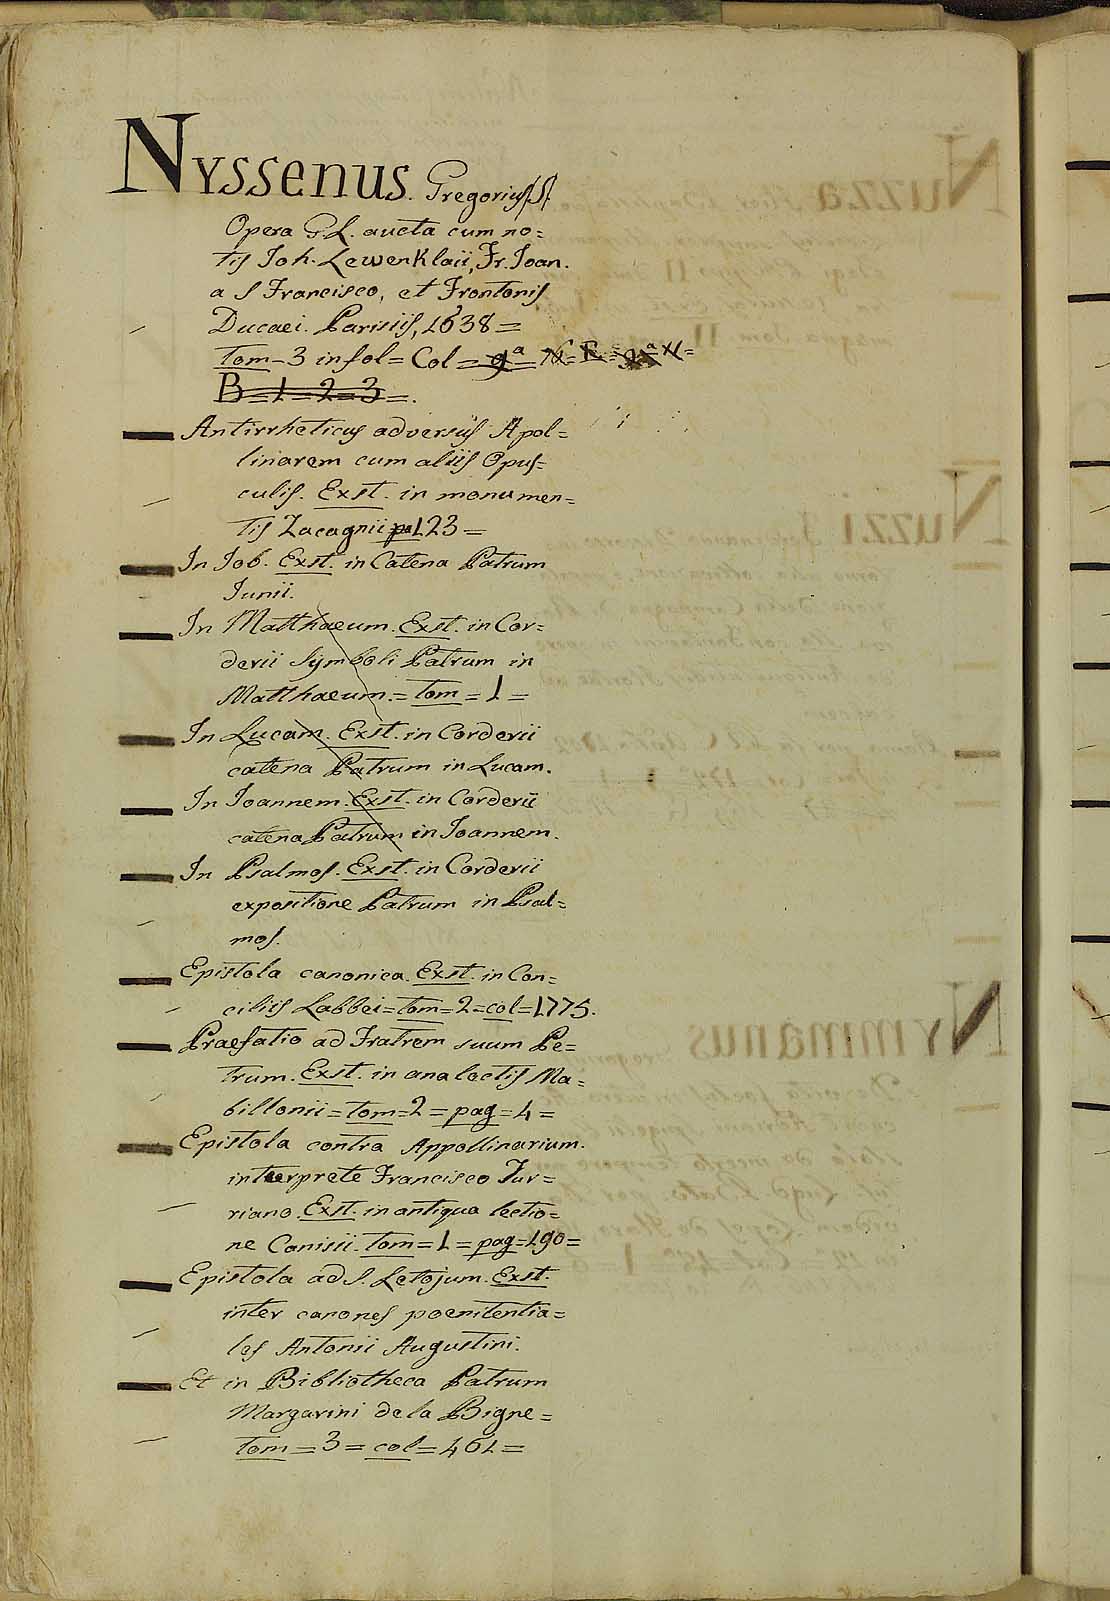 Nyssenus. Gregorius S.
Opera G. L. aucta cum no=
tis Joh. Lewenklaii, Fr. Joan.
a S Francisco, et Frontonis
Ducaei. Parisiis, 1638=
Tom-3 in fol= Col=
B=1=2=3=.
Antirrheticus adversus Apol=
linarem cum aliis Opus=
culis. Exst. in monumen=
tis Zacagnii pa 123=
In Job. Exst. in Catena Patrum
Junii.
In Matthaeum. Exst. in Cor=
derii Symboli Patrum in
Matthaeum.=tom=1=
In Lucam. Exst. in Corderii
catena Patrum in Lucam.
In Joannem. Exst. in Corderii
catena Patrum in Joannem.
In Psalmos. Exst. in Corderii
expositione Patrum in Psal=
mos.
Epistola canonica. Exst. in Con=
ciliis Labbei=tom=2=col=1775.
Praefatio ad Fratrem suum Pe=
trum. Exst. in analectis Ma=
billonii=tom=2=pag=4=
Epistola contra Appollinarium.
interprete Francisco Tur=
riano. Exst. in antiqua lectio=
ne Canisii. tom=1=pag=190=
Epistola ad S. Letojum. Exst.
inter canones poenitentia=
les Antonii Augustini.
Et in Bibliotheca Patrum
Margarini de la Bigne=
tom=3=col=461=